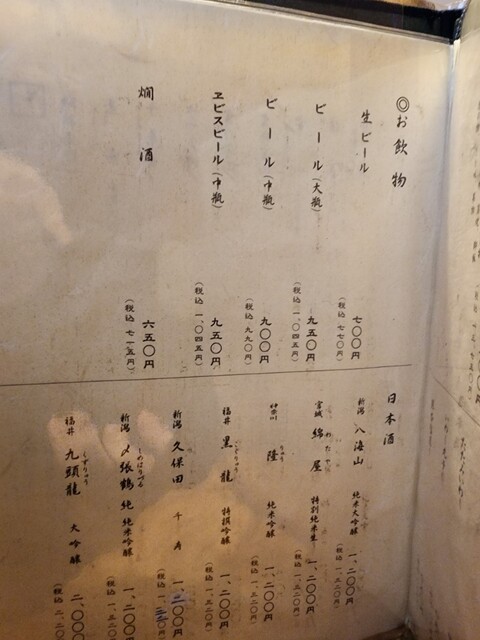 ◎お飲物
生ビール 七〇〇円
(税込 七七〇円)
ビール(大瓶) 九五〇円
(税込 一、〇四五円)
ビール(中瓶) 九〇〇円
(税込 九九〇円)
ヱビスビール(中瓶) 九五〇円
(税込 一、〇四五円)
燗酒 六五〇円
(税込 七一五円)
日本酒
新潟 八海山 純米大吟醸 一、二〇〇円
(税込 一、三二〇円)
宮城 綿屋 わたや 特別純米生 一、二〇〇円
(税込 一、三二〇円)
神奈川 隆 りゅう 純米吟醸 一、二〇〇円
(税込 一、三二〇円)
福井 黒龍 こくりゅう 特撰吟醸 一、二〇〇円
(税込 一、三二〇円)
新潟 久保田 千寿
新潟 〆張鶴 しめはりつる 純 純米吟醸 一、二〇〇円
(税込 一、三二〇円)
福井 九頭龍 くずりゅう 大吟醸 二、〇〇
(税込 二、二〇